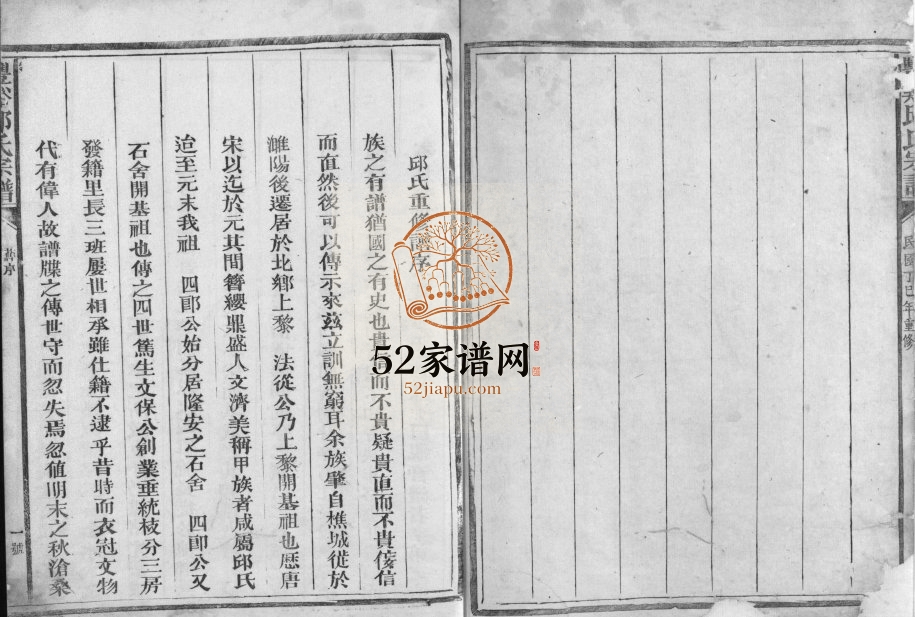 國丁巳年重修
邱氏重修譜序
族之有譜猶國之有史也貴 而不貴疑貴直而不貴 信
而直然後可以傳示來茲立訓無窮耳余族肇自樵城徙於
濉陽後遷居於北鄉上黎 法從公乃上黎開基祖也歷唐
宋以迄於元其間簪纓鼎盛人文濟美稱甲族者咸屬邱氏
迨至元末我祖 四郎公始分居隆安之石舍 四郎公又
石舍開基祖也傳之四世篤生文保公創業垂統枝分三房
發籍里長三班屢世相承雖仕籍不逮乎昔時而衣冠文物
代有偉人故譜牒之傳世守而忽失焉忽值明末之秋滄桑
邱氏宗譜
序
一號
52家谱网
52jiapu.com